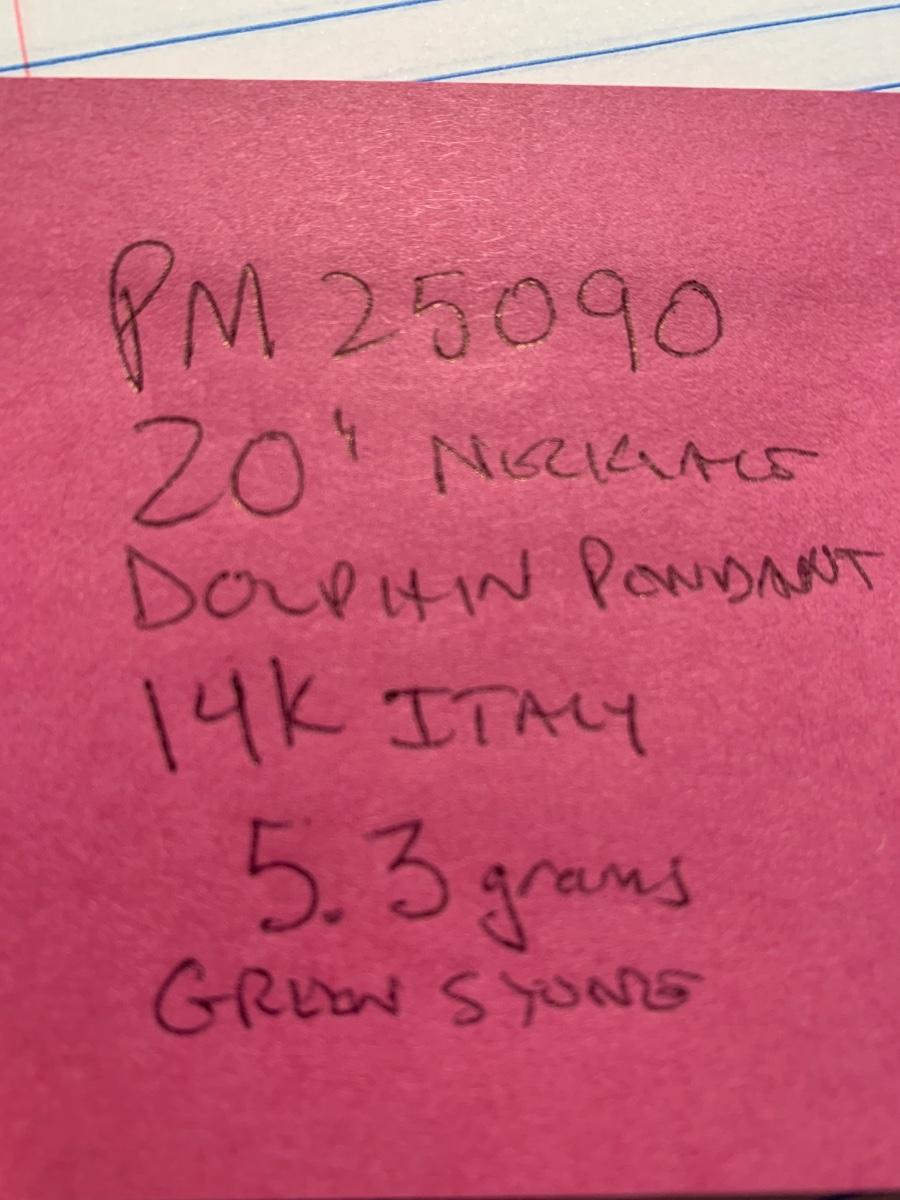 PM 25090
20" NECKLACE
DOLPHIN PENDANT
14K ITALY
5.3 grams
GREEN STONE